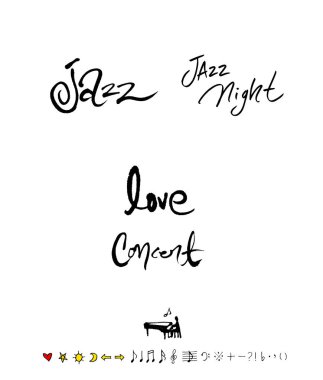 Jazz
JAzz
Night
love
Concert
+ - ? ! 6 : · ; ( )